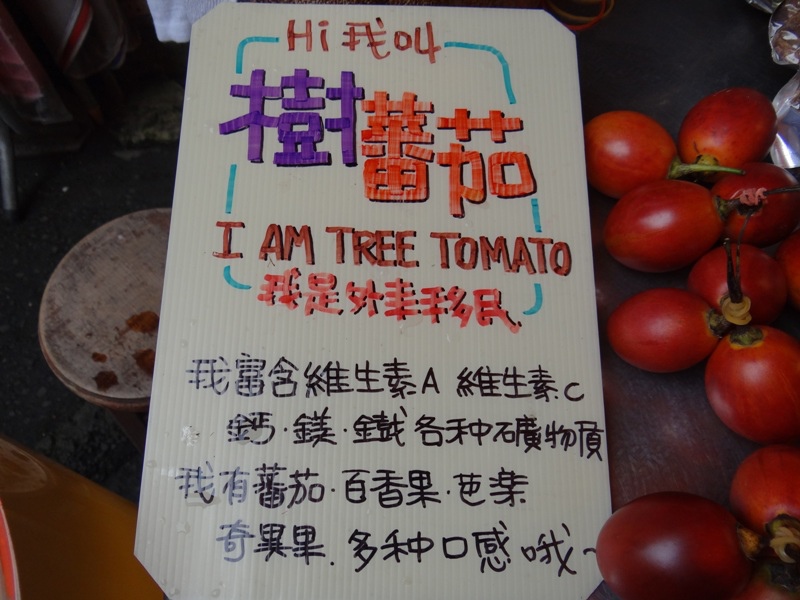 Hi 我叫
樹蕃茄
I AM TREE TOMATO
我是外來移民
我富含維生素A 維生素C
鈣·鎂·鐵各种礦物質
我有蕃茄·百香果·芭樂
奇異果.多种口感哦~